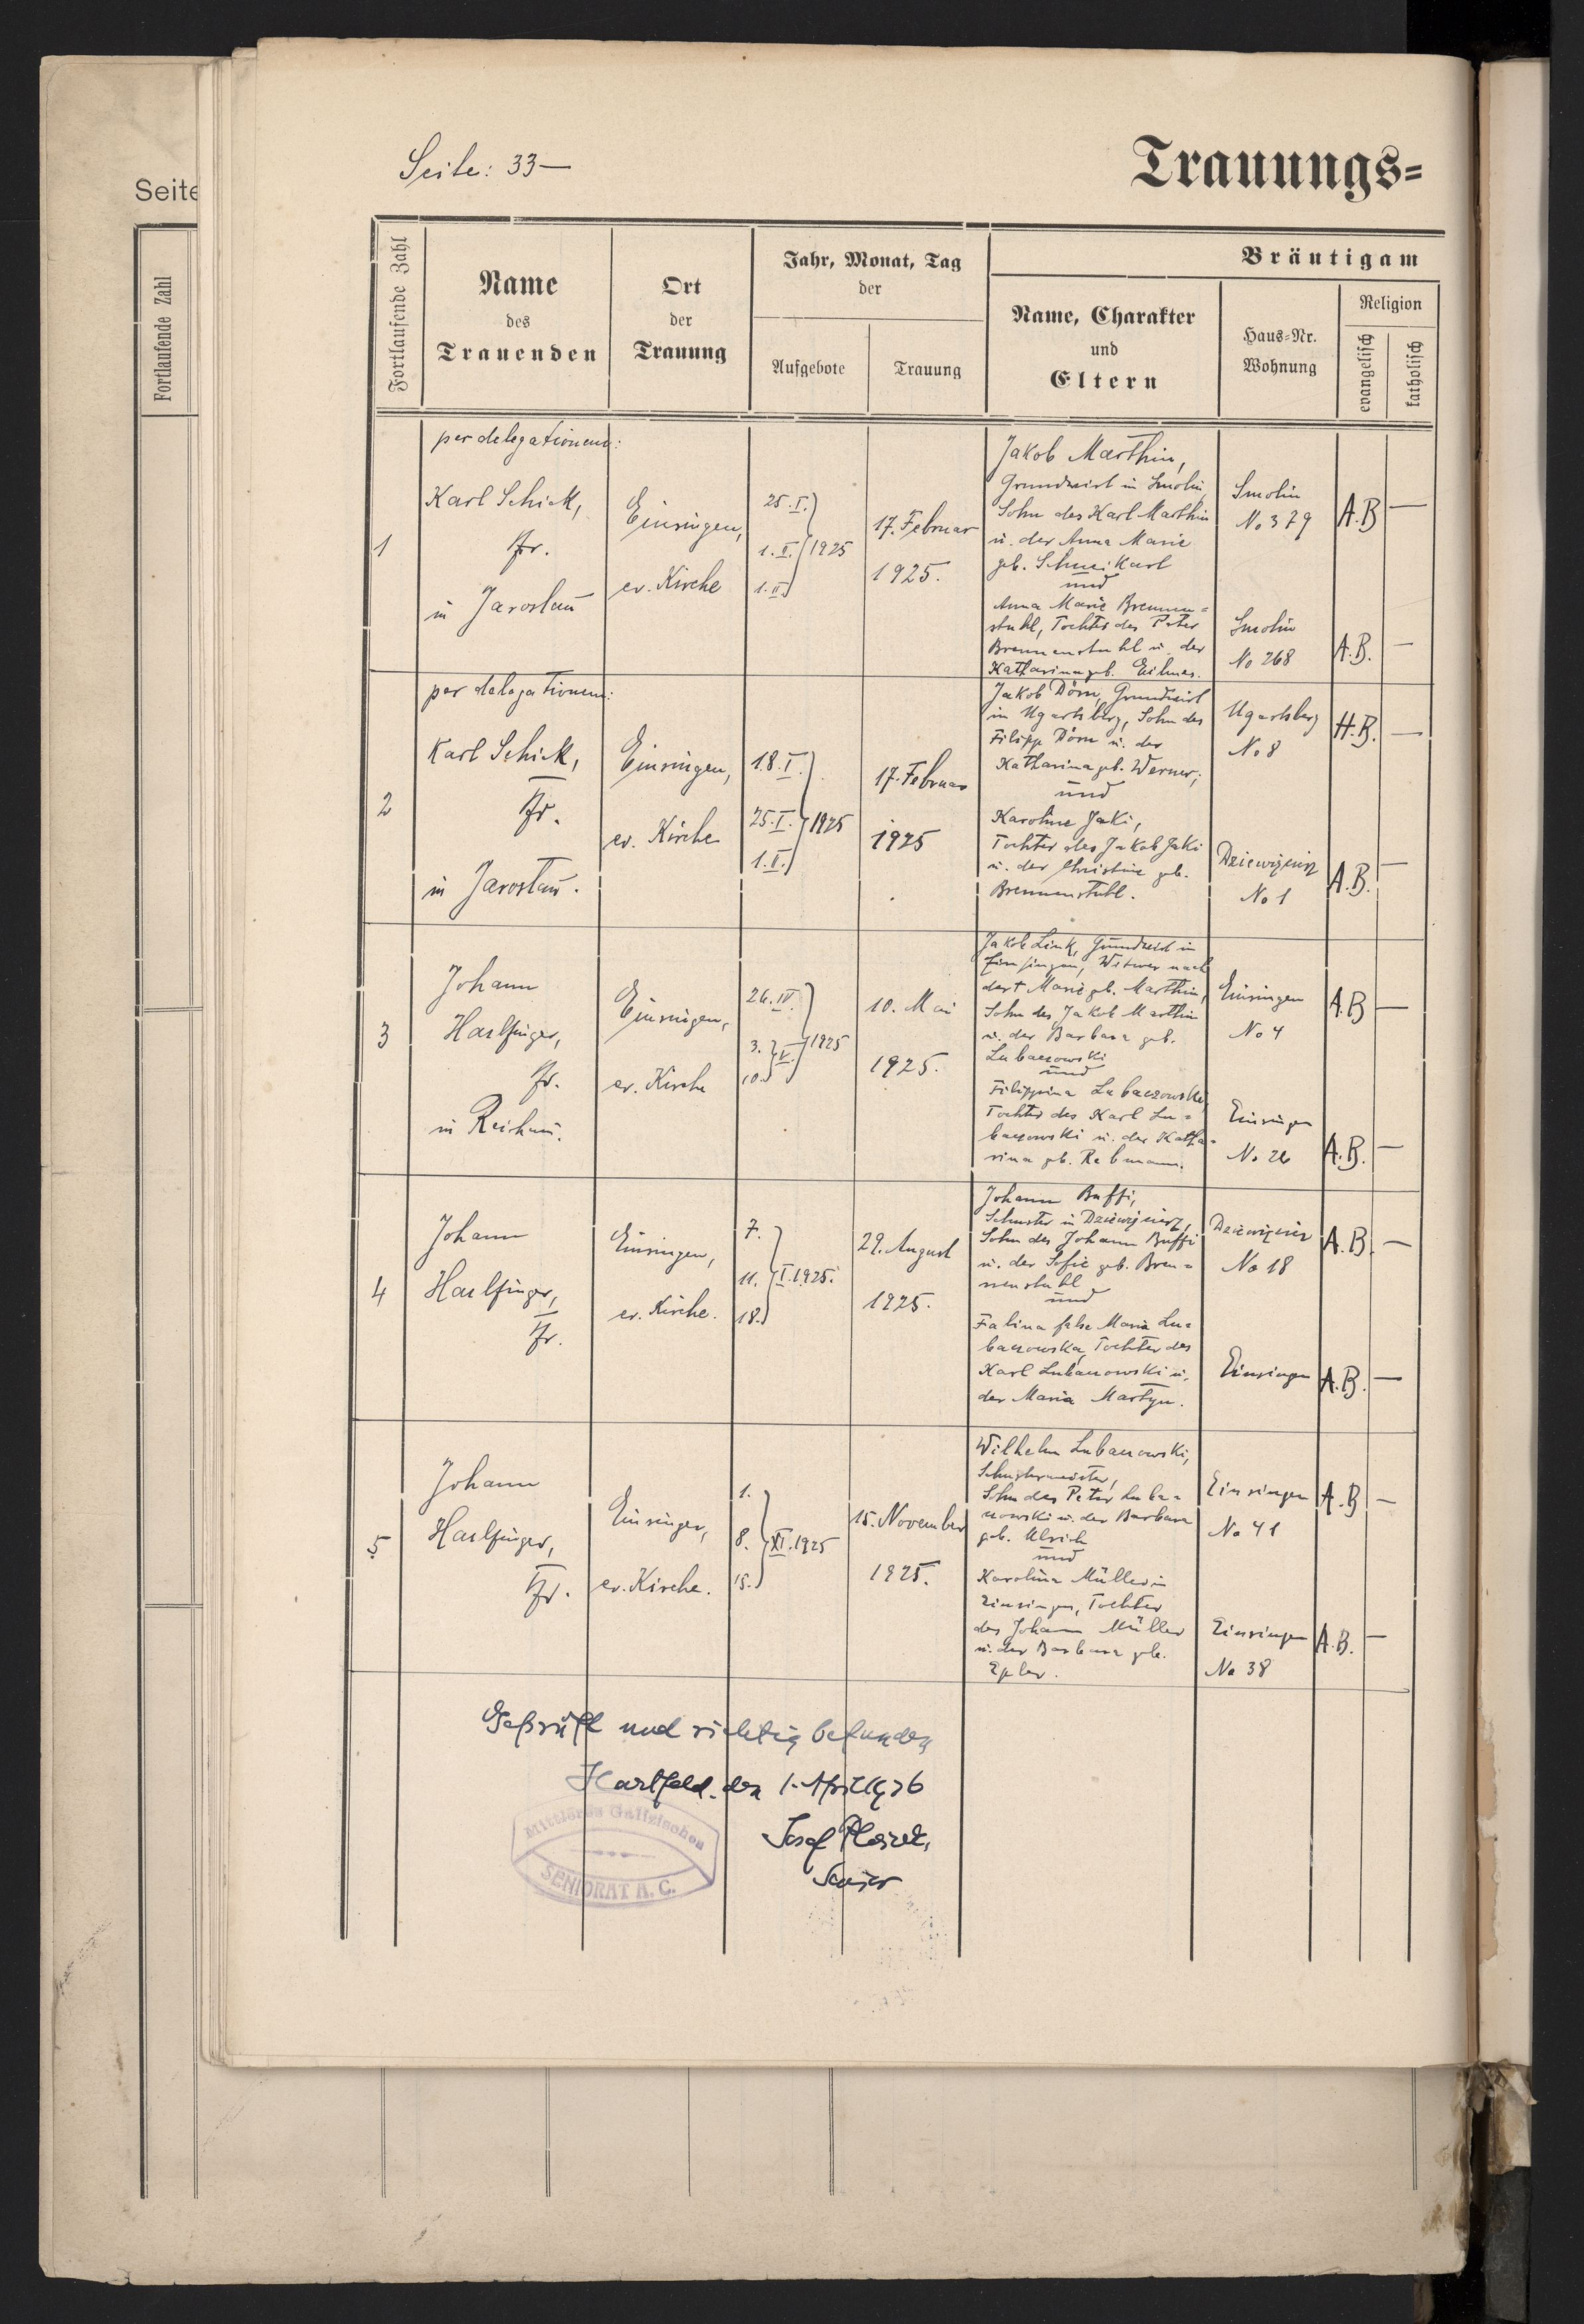 Seite: 33—
Trauungs=
Seite
Fortlaufende Zahl
Fortlaufende Zahl
Name
des
Trauenden
Ort
der
Trauung
Jahr, Monat, Tag
der
Aufgebote
Trauung
Bräutigam
Name, Charakter
und
Eltern
Haus=Nr.
Wohnung
Religion
evangelisch
katholisch
1
per delegationem:
Karl Schick,
Pfr.
in Jaroslau
Einsingen,
ev. Kirche
25. I.
1. II. 1925
1. II.
17. Februar
1925.
Jakob Marthin,
Grundwirt in Smolin,
Sohn des Karl Marthin
u. der Anna Marie
geb. Schweikart
und
Anna Marie Brennen=
stuhl, Tochter des Peter
Brennenstuhl u. der
Katharina geb. Eilmes.
Smolin
No 379
A.B —
Smolin
No 268
A.B. —
2
per delegationem:
Karl Schick,
Pfr.
in Jaroslau.
Einsingen,
ev. Kirche
18. I.
25. I. 1925
1. II.
17. Februar
1925
Jakob Dörn, Grundwirt
in Ugartsberg, Sohn des
Filipp Dörn u. der
Katharina geb. Werner;
und
Karoline Jaki,
Tochter des Jakob Jaki
u. der Christine geb.
Brennenstuhl.
Ugartsberg
No 8
H.B. —
Dziewięcierz
No 1
A.B. —
3
Johann
Harlfinger,
Pfr.
in Reichau.
Einsingen,
ev. Kirche
26. IV.
3. V. 1925
10.
10. Mai
1925.
Jakob Link, Grundwirt in
Einsingen, Witwer nach
der † Marie geb. Marthin,
Sohn des Jakob Marthin
u. der Barbara geb.
Lubaczowski
und
Filippina Lubaczowski,
Tochter des Karl Lu=
baczowski u. der Katha=
rina geb. Rebmann.
Einsingen
No 4
A.B —
Einsingen
No 26
A.B. —
4
Johann
Harlfinger,
Pfr.
Einsingen,
ev. Kirche.
7.
11. I. 1925.
18.
29. August
1925.
Johann Buffi,
Schuster in Dziewięcierz,
Sohn des Johann Buffi
u. der Sofie geb. Bren=
nenstuhl
und
Falina false Maria Lu=
baczowska, Tochter des
Karl Lubaczowski u.
der Maria Martyn.
Dziewięcierz
No 18
A.B. —
Einsingen
A.B. —
5
Johann
Harlfinger,
Pfr.
Einsingen,
ev. Kirche.
1.
8. XI. 1925
15.
15. November
1925.
Wilhelm Lubaczowski,
Schuhmeister,
Sohn des Peter Luba=
czowski u. der Barbara
geb. Ulrich
und
Karolina Müller in
Einsingen, Tochter
des Johann Müller
u. der Barbara geb.
Epler.
Einsingen
No 41
A.B —
Einsingen
No 38
A.B. —
Geprüft und richtig befunden
Hartfeld, den 1. April 1926
Josef
Senior
Mittleres Galizisches
SENIORAT A. C.